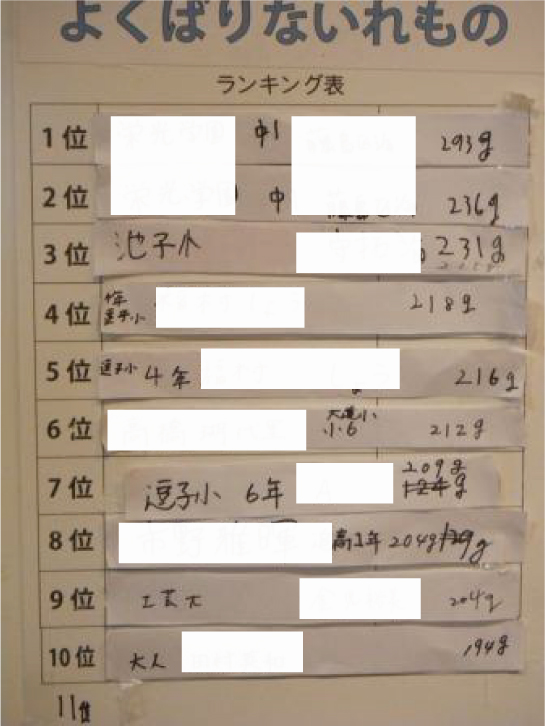 よくばりないれもの
ランキング表
1位 中1 293g
2位 中 236g
3位 池子小 231g
4位 逗子小 218g
5位 逗子小 4年 216g
6位 小6 212g
7位 逗子小 6年 209g 124g
8位 高3年 204g
9位 工芸大 204g
10位 大人 194g
11位